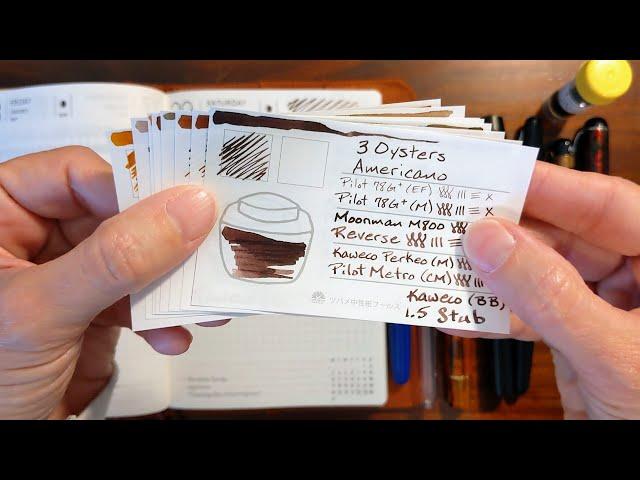 SATURDAY
3 Oysters
Americano
Pilot 78G+ (EF)
Pilot 78G+ (M)
Moonman M800
Reverse
Kaweco Perkeo (M)
Pilot Metro (CM)
Kaweco (BB,
1.5 Stub
ツバメ中性紙フールス